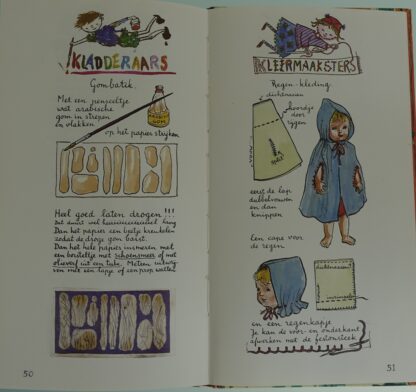 KLADDERAARS
Gombatik.
Met een penseeltje
wat arabische
gom in strepen
en vlakken
op het papier strijken
Heel goed laten drogen!!!
Dat duurt wel
Dan het papier een beetje kreukelen
zodat de droge gom barst.
Dan het hele papier insmeren met
een borsteltje met schoensmeer of met
olieverf uit een tube. Meteen uitwrij-
ven met een lapje of een prop watten
50
KLEERMAAKSTERS
Regen-kleding.
dichtnaaien
koordje
door
rijgen
split
eerst de lap
dubbelvouwen
en dan
knippen
Een cape voor
de regen
dichtnaaien
en een regenkapje
Je kan de voor- en onderkant
afwerken met de festonsteek
51